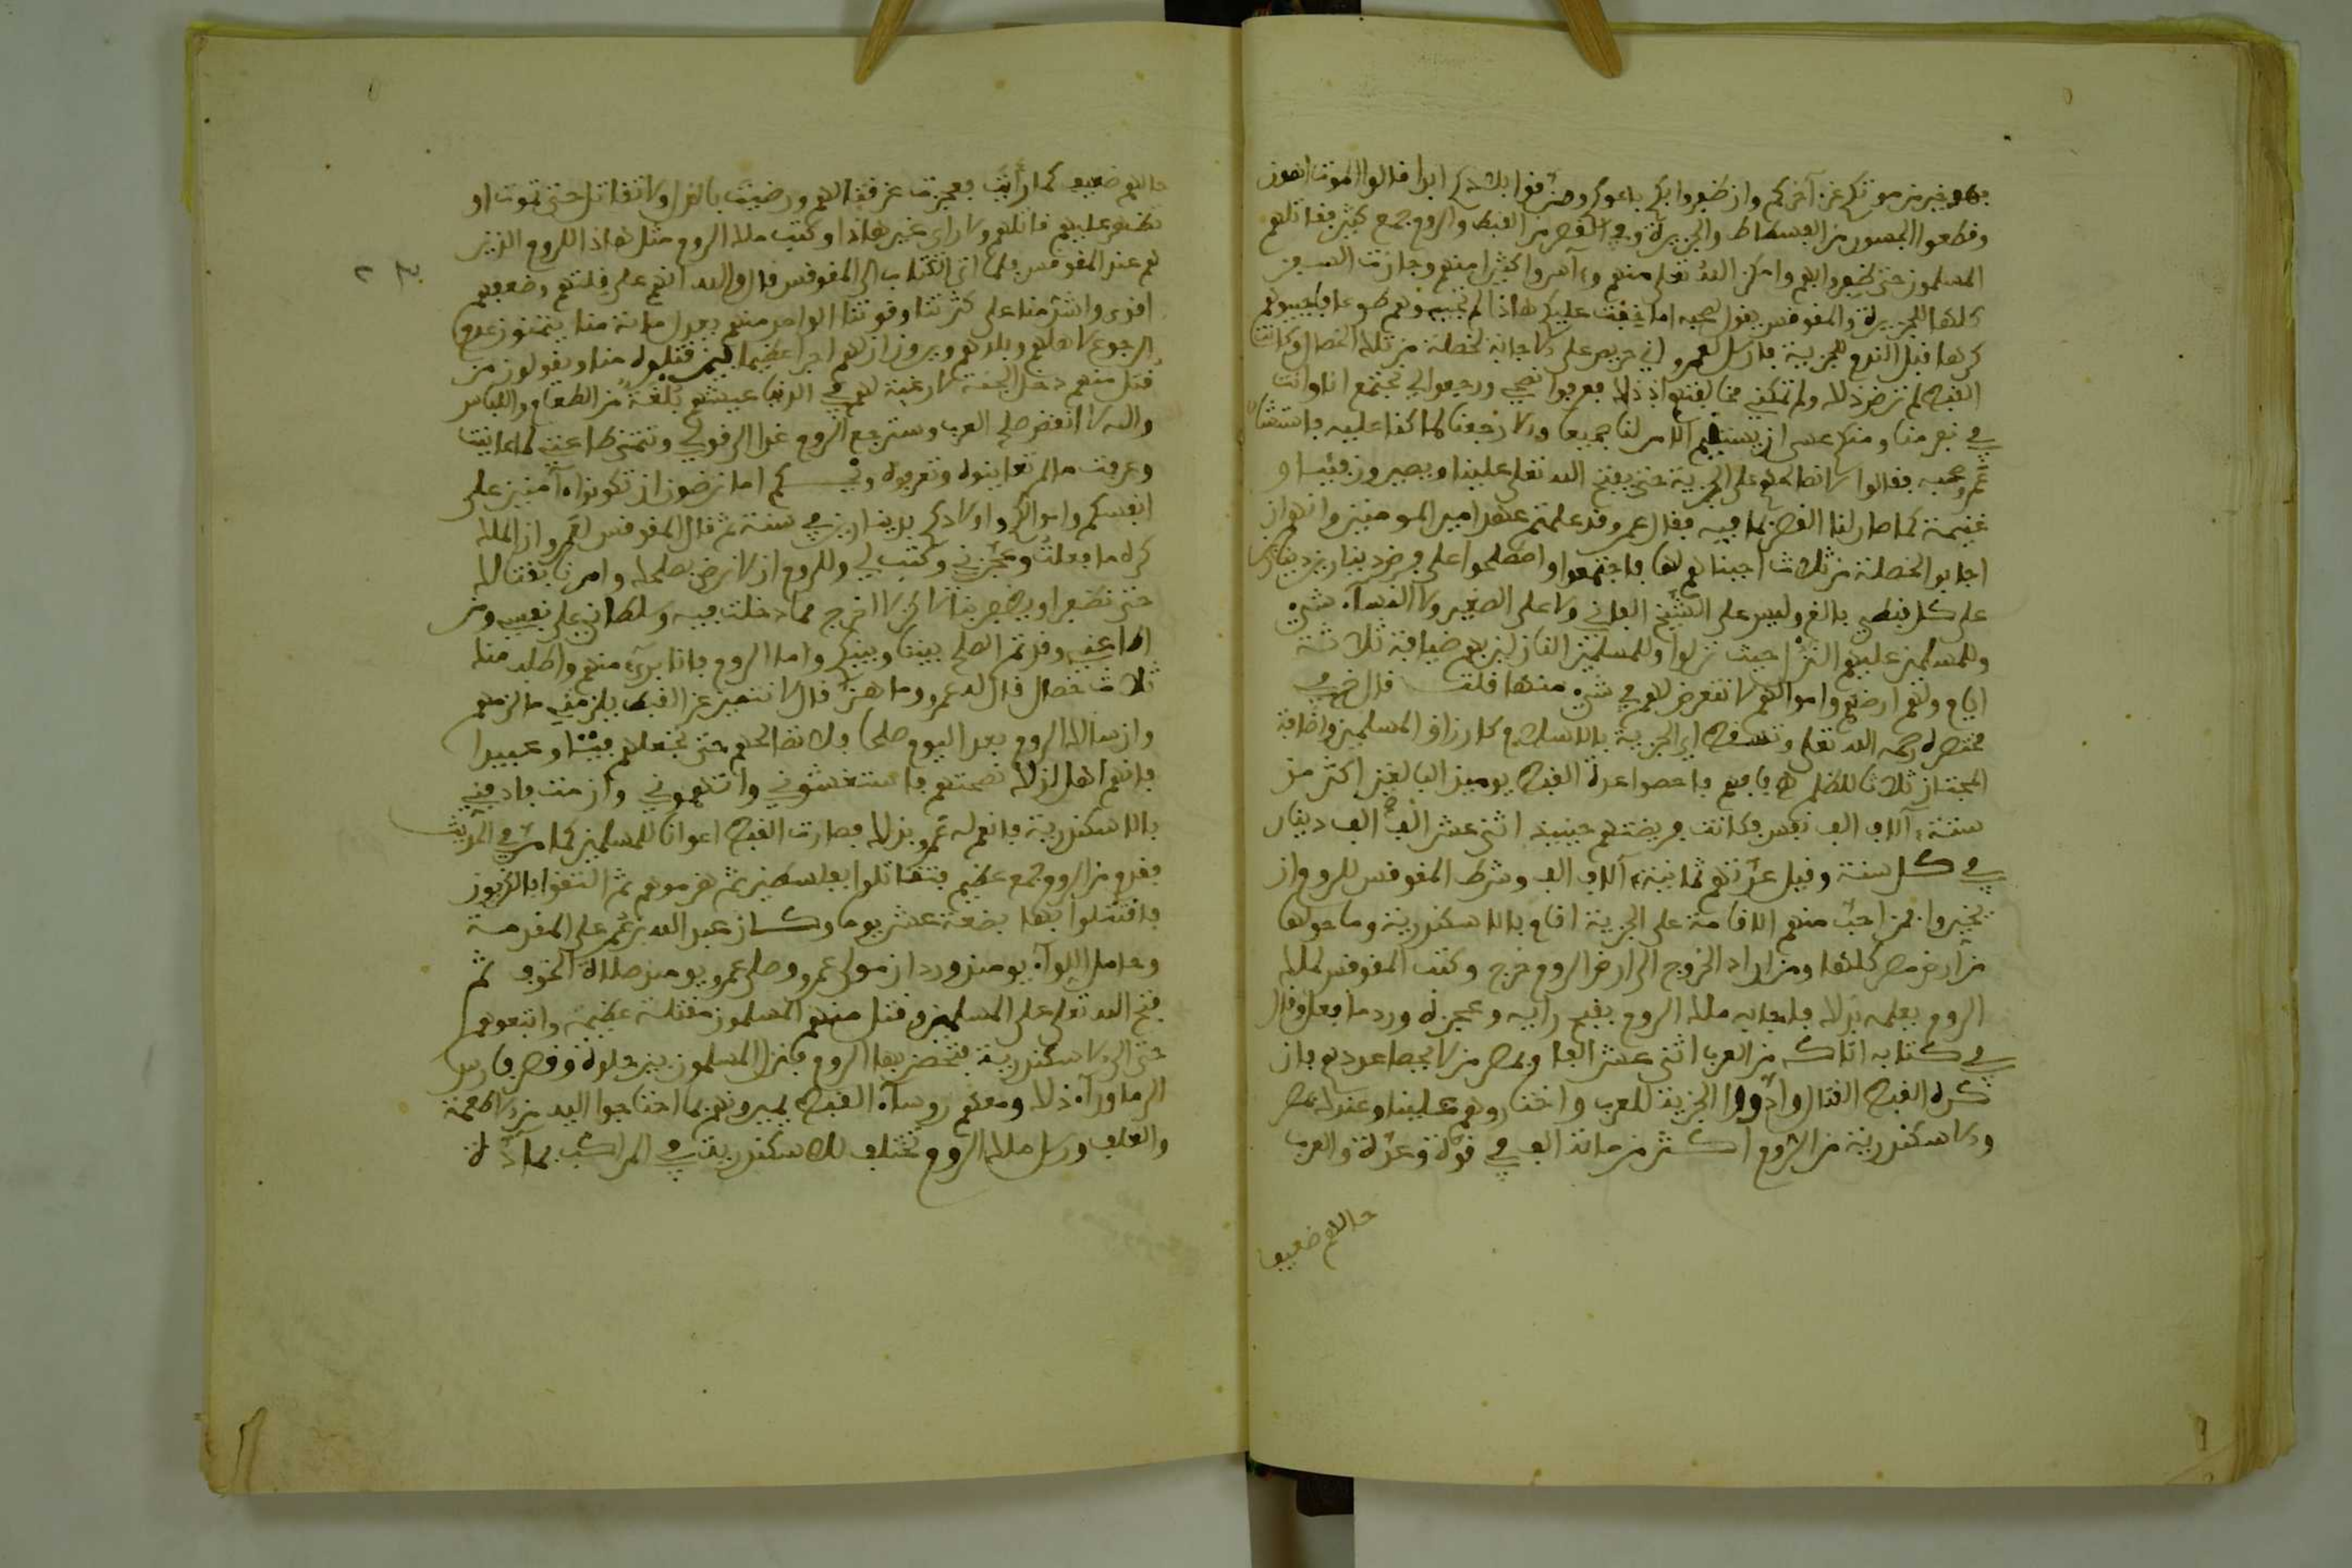 فهو خير من موتكم عن آخركم وان ظفروا بكم باعوكم ومزقوا بلادكم ابدا قالوا الموت اهون
وقطعوا الجسور من الفسطاط والجزيرة وفي القصر من القبط والروم جمع كثير فقاتلهم
المسلمون حتى ظفروا بهم وامكن الله تعلى منهم وأسروا كثيرا منهم وجازت السفن
كلها للجزيرة والمقوقس يقول لصحبه اما خفت عليكم هاذا لم تجيبوهم طوعا فاجيبوهم
كرها قبل الندم للجزية فارسل لعمرو اني حريص على الاجابة لخصلة من تلك الخصال وكانت
القبط لم ترض ذلك ولم تمكني مخالفتهم اذ ذلك فعرفوا نصحي ورجعوا لي نجتمع انا وانت
في نفر منا ومنكم عسى ان يستقيم الامر لنا جميعا والا رجعنا لما كنا عليه فاستشار
عمرو صحبه فقالوا لا نصالحهم على الجزية حتى يفتح الله تعلى علينا ويصيرون فيئا و
غنيمة كما صار لنا القصر بما فيه فقال عمرو قد علمتم عهد امير المومنين وانهم ان
اجابوا لخصلة من ثلاث اجبناهم لها فاجتمعوا واصطلحوا على فرض دينارين دينارين
على كل قبطي بالغ وليس على الشيخ الفاني ولا على الصغير ولا النساء شيء
وللمسلمين عليهم النزل حيث نزلوا وللمسلمين النازلين بهم ضيافة ثلاثة
ايام ولهم ارضهم واموالهم لا نتعرض لهم في شيء منها قلت قال في
مختصره رحمه الله تعلى وتسقط اي الجزية بالاسلام كارزاق المسلمين واضافة
المجتاز ثلاثا للظلم فاحصوا عدة القبط يومئذ البالغين اكثر من
ستة آلاف الف نفس فكانت فريضتهم حينئذ اثني عشر الف الف دينار
في كل سنة وقيل عدتهم ثمانية آلاف الف وشرط المقوقس للروم ان
يخيروا فمن احب منهم الاقامة على الجزية اقام بالاسكندرية وما حولها
من ارض مصر كلها ومن اراد الخروج الى ارض الروم خرج وكتب المقوقس لملك
الروم يعلمه بذلك فاجابه ملك الروم يقبح رايه وعجزه ورد ما فعل وقال
في كتابه اتاك من العرب اثني عشر الفا وبمصر من لا يحصا عددهم فان
كره القبط القتال وادوا الجزية للعرب واختاروهم علينا وعندك بمصر
والاسكندرية من الروم اكثر من مائة الف في قوة وعدة والعرب
حالهم ضعيف
حالهم ضعيف كما رأيت فعجزت عن قتالهم ورضيت بالذل ولا تقاتل حتى تموت او
تظهر عليهم قاتلهم ولا راي غير هاذا وكتب ملك الروم مثل هاذا للروم الذين
هم عند المقوقس فلما اتى الكتاب الى المقوقس قال والله انهم على قلتهم وضعفهم
اقوى واشد منا على كثرتنا وقوتنا الواحد منهم يعدل مائة منا يتمنون عدم
الرجوع لاهلهم وبلدهم ويرون ان لهم اجرا عظيما فيمن قتلوه منا ويقولون من
قتل منهم دخل الجنة لا رغبة لهم في الدنيا عيشهم بلغة من الطعام واللباس
والله لا انقض صلح العرب وسترجع الروم غدا الى قولي وتتمنى طاعتي كما عاينت
وعرفت ما لم تعاينوه وتعرفوه ويحكم اما ترضون ان تكونوا آمنين على
انفسكم واموالكم واولادكم بدينارين في سنة ثم قال المقوقس لعمرو ان الملك
كره ما فعلت وعجزني وكتب لي وللروم ان لا نرض بصلحك وامرنا بقتالك
حتى تظفر او يظفر بنا لاكن لا اخرج مما دخلت فيه وسلطاني على نفسي ومن
اطاعني وقد تم الصلح بيننا وبينكم واما الروم فانا بري منهم واطلب منك
ثلاث خصال قال له عمرو وما هن قال لا تنتقض عن القبط يلزمني ما لزمهم
وان سالك الروم بعد اليوم صلحا فلا تصالحهم حتى تجعلهم فيئا وعبيدا
فانهم اهل لذلك نصحتهم فاستغشوني واتهموني وان مت فادفني
بالاسكندرية فانعم له عمرو بذلك فصارت القبط اعوانا للمسلمين كما مر في الحديث
فقدم من الروم جمع عظيم فتقاتلوا بسلطيس ثم هزموهم ثم التقوا بالكريون
فاقتتلوا بها بضعة عشر يوما وكان عبد الله بن عمر على المقدمة
وحامل اللواء يومئذ وردان مولى عمرو وصلى عمرو يومئذ صلاة الخوف ثم
فتح الله تعلى على المسلمين وقتل منهم المسلمون مقتلة عظيمة واتبعوهم
حتى الى الاسكندرية فتحصن بها الروم فنزل المسلمون بين حلوة وقصر فارس
الى ما وراء ذلك ومعهم رؤساء القبط يميرونهم بما احتاجوا اليه من الاطعمة
والعلف ورسل ملك الروم تختلف للاسكندرية في المراكب بمادة